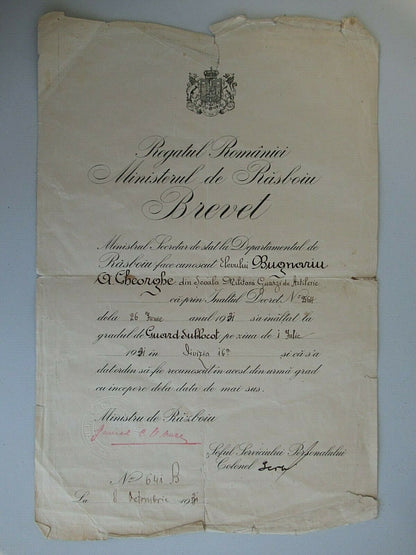 Regatul României
Ministerul de Răsboiu
Brevet
Ministrul Secretar de stat la Departamentul de
Răsboiu face cunoscut Elevului Bugnariu
A. Gheorghe din Școala Militară Guarzi de Artilerie
că prin Înaltul Decret Nº
dela 26 Iunie anul 1931 s'a înălțat la
gradul de Guard Sublocot pe ziua de 1 Iulie
1931 în Divizia 16ª și că s'a
dat ordin să fie recunoscut în acest din urmă grad
cu începere dela data de mai sus.
Ministru de Război
General
Șeful Serviciului Personalului
Colonel
Nº 641 B
La 8 Octombrie 1931